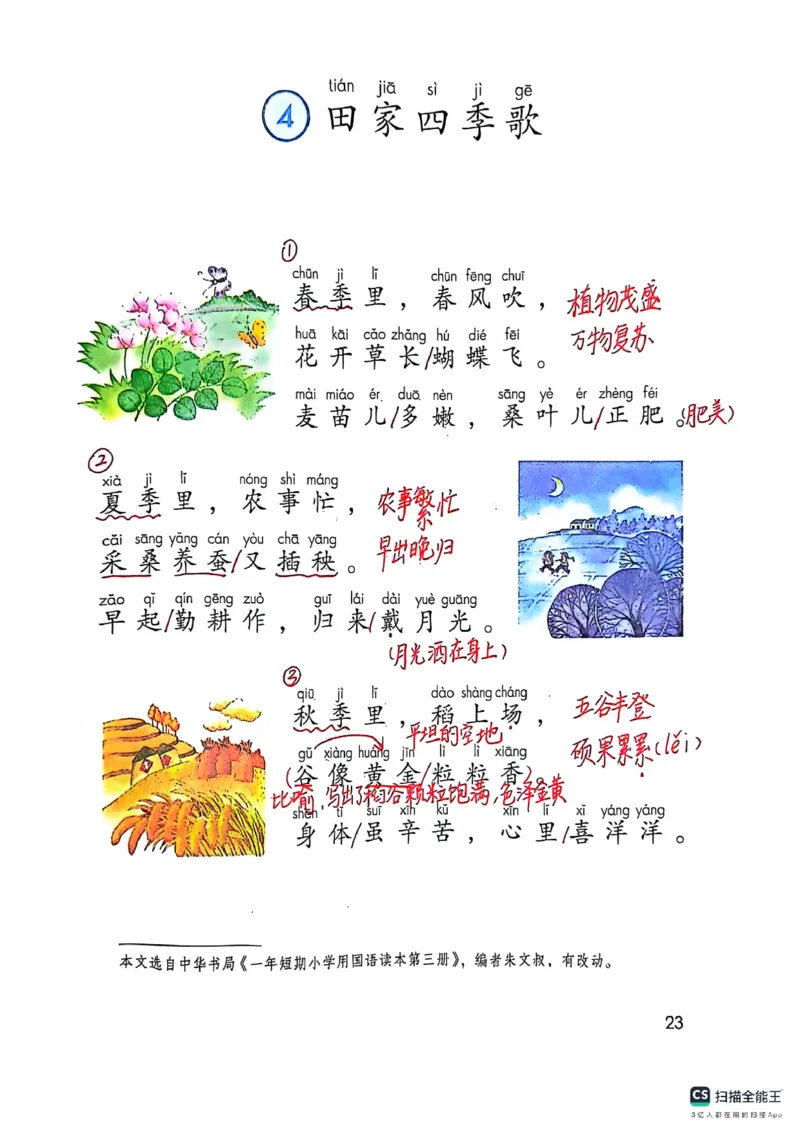 tián jiā sì jì gē
4 田家四季歌
①
chūn jì lǐ chūn fēng chuī
春季里，春风吹， 植物茂盛
huā kāi cǎo zhǎng hú dié fēi
花开草长/蝴蝶飞。 万物复苏
mài miáo ér duō nèn sāng yè ér zhèng féi
麦苗儿/多嫩，桑叶儿/正肥。(肥美)
②
xià jì lǐ nóng shì máng
夏季里，农事忙， 农事繁忙
cǎi sāng yǎng cán yòu chā yāng
采桑养蚕/又插秧。 早出晚归
zǎo qǐ qín gēng zuò guī lái dài yuè guāng
早起/勤耕作，归来/戴月光。
(月光洒在身上)
③
qiū jì lǐ dào shàng cháng
秋季里，稻上场， 五谷丰登
平坦的空地
gǔ xiàng huáng jīn lì lì xiāng
(谷像黄金/粒粒香)。 硕果累累(léi)
比喻，写出了稻谷颗粒饱满，色泽金黄
shēn tǐ suī xīn kǔ xīn lǐ xǐ yáng yáng
身体/虽辛苦，心里/喜洋洋。
本文选自中华书局《一年短期小学用国语读本第三册》，编者朱文叔，有改动。
23
CS 扫描全能王
3亿人都在用的扫描App